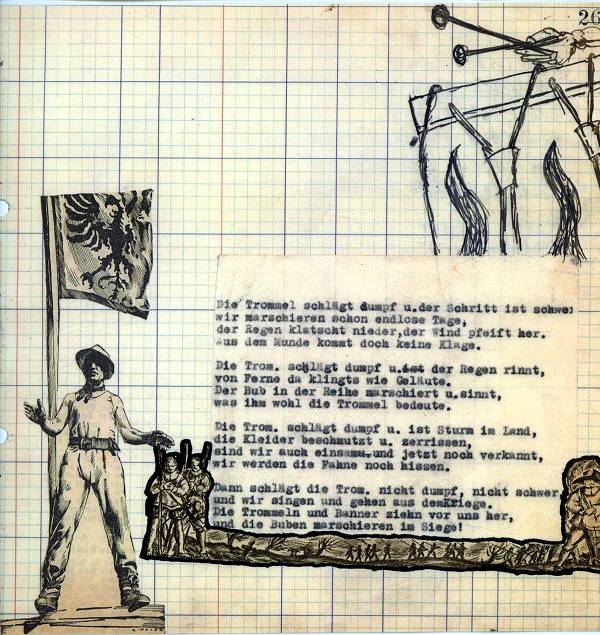 26
Die Trommel schlägt dumpf u.der Schritt ist schwer
wir marschieren schon endlose Tage,
der Regen klatscht nieder,der Wind pfeift her.
Aus dem Munde kommt doch keine Klage.
Die Trom. schlägt dumpf u.ist der Regen rinnt,
von Ferne da klingts wie Geläute.
Der Bub in der Reihe marschiert u.sinnt,
was ihm wohl die Trommel bedeute.
Die Trom. schlägt dumpf u. ist Sturm im Land,
die Kleider beschmutzt u. zerrissen,
sind wir auch einsam u-und jetzt noch verkannt,
wir werden die Fahne noch hissen.
Dann schlägt die Trom. nicht dumpf, nicht schwer
und wir singen und gehen aus demKriege.
Die Trommeln und Banner ziehn vor uns her,
und die Buben marschieren im Siege!